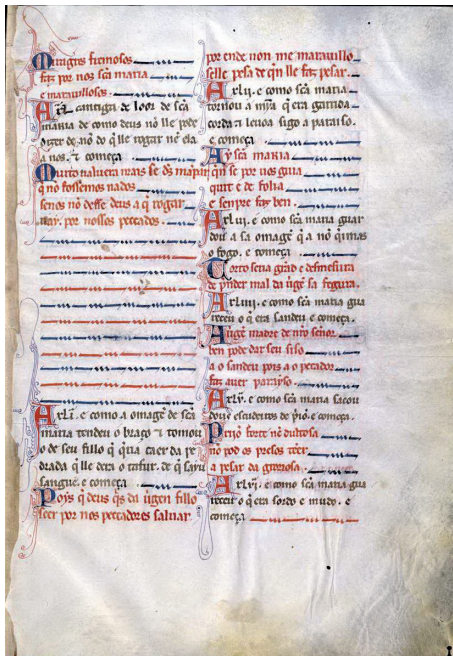 Miragres fremosos
faz por nos sc̃a maria
e marauillosos.
A xl. cantiga de loor de sc̃a
maria de como deus nõ lle pode
dizer de nõ do q̃ lle rogar nẽ ela
a nos. ⁊ começa
Muito ualuera mais se d̃s maprin
q̃ nõ fossemos nados
se nos nõ desse deus a q̃ rogar
uay. por nossos pecados.
A xli. e como a omagẽ de sc̃a
maria tendeu o braço ⁊ tomou
o de seu fillo q̃ q̃ria caer da pe
drada q̃ lle dera o tafur. de q̃ sayu
sangue. e começa
Poys q̃ deus q̃s da uirgen fillo
seer por nos pecadores saluar.
por ende non me marauillo
selle pesa de q̃n lle faz pesar.
A xlij. e como sc̃a maria
tornou a mĩa q̃ era garrida
corda ⁊ leuoa sigo a parayso.
e começa
Ay sc̃a maria
q̃n se por uos guia
quit e de folia
e senpre faz ben.
A xliij. e como sc̃a maria guar
dou a sa omagẽ q̃ a nõ q̃imas
o fogo. e começa
Torto seria grãd e desmesura
de prẽder mal da uirgẽ sa fegura.
A xliiij. e como sc̃a maria gua
receu o q̃ era sandeu e começa.
A uirgẽ madre de nr̃o señor
ben pode dar seu siso
a o sandeu pois a o pecador
faz auer parayso.
A xlv. e como sc̃a maria sacou
dous escudeiros de prijõ. e começa.
Prijõ forte nẽ dultosa
nõ pod os presos teer
a pesar da groriosa.
A xlvj. e como sc̃a maria gua
receu o q̃ era sordo e mudo. e
começa